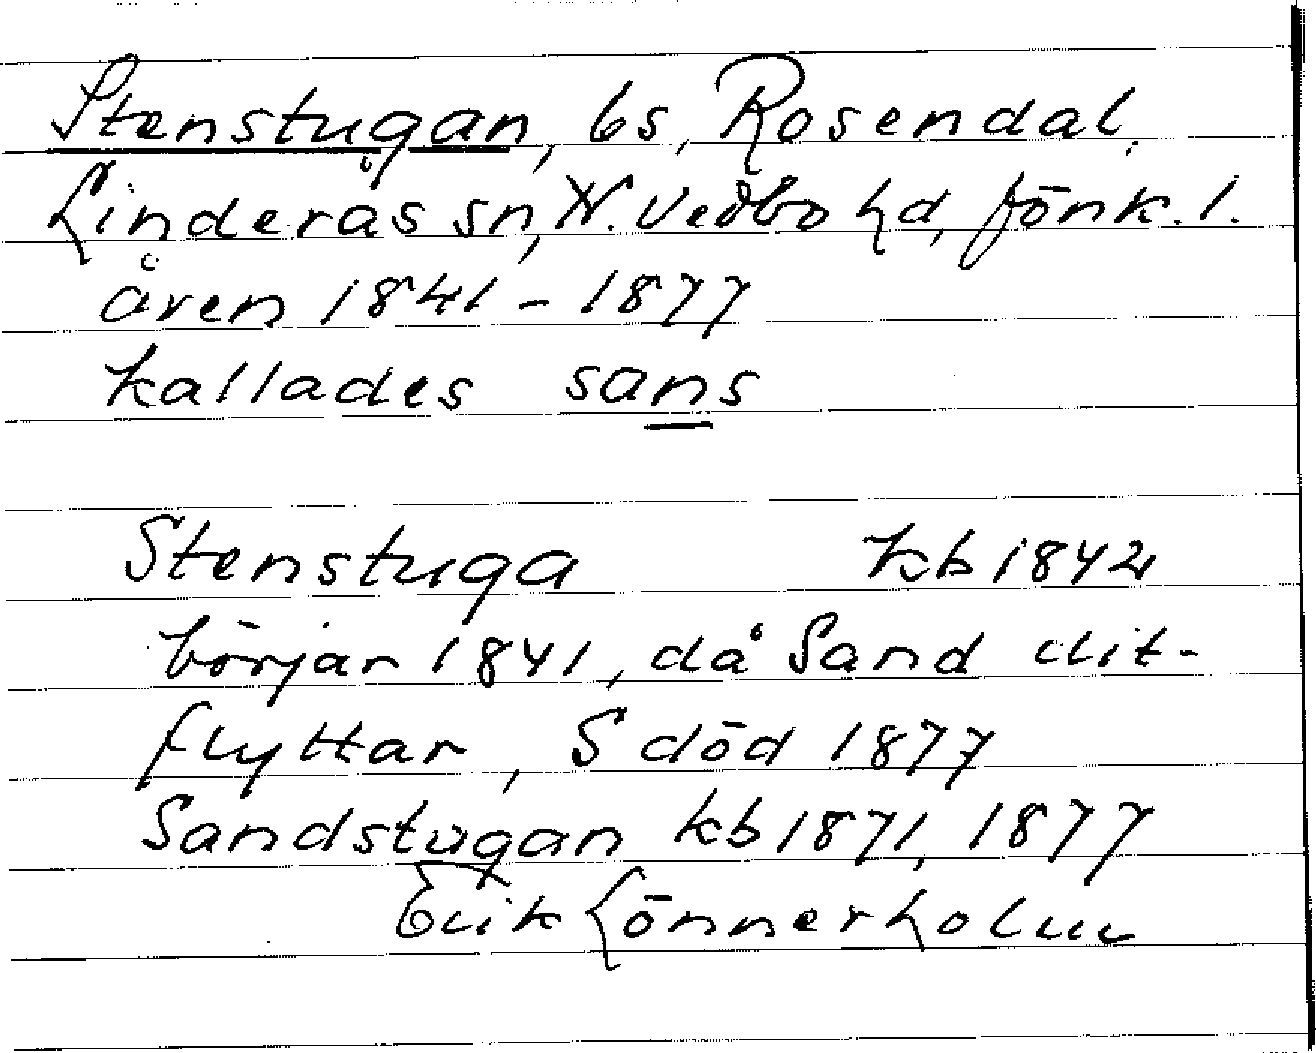 Stenstugan, bs, Rosendal,
Linderås sn, N. Vedbo hd, Jönk. l.
åren 1841 - 1877
kallades sans
Stenstuga kb 1842
börjar 1841, då Sand dit-
flyttar, S död 1877
Sandstugan kb 1871, 1877
Erik Lönnerholm